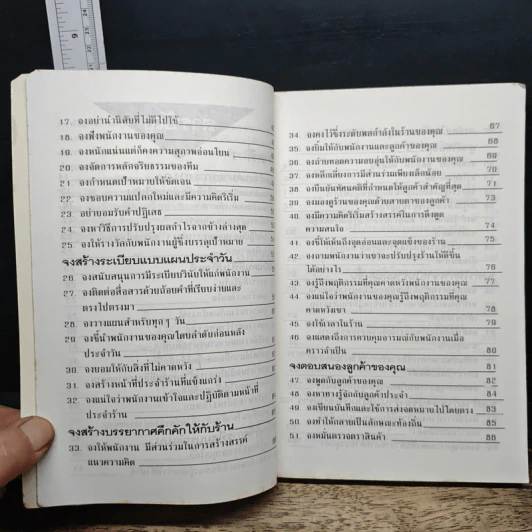 17. จงอย่านำนิสัยที่ไม่ดีไปใช้
18. จงฟังพนักงานของคุณ
19. จงหนักแน่นแต่ก็คงความสุภาพอ่อนโยน
20. จงจัดการหลักจริยธรรมของทีม
21. จงกำหนดเป้าหมายให้ชัดเจน
22. จงชอบความแปลกใหม่และมีความคิดริเริ่ม
23. อย่ายอมรับคำปฏิเสธ
24. จงหาวิธีการปรับปรุงผลกำไรจากข้างล่างสุด
25. จงให้รางวัลกับพนักงานผู้ซึ่งบรรลุเป้าหมาย
จงสร้างระเบียบแบบแผนประจำวัน
26. จงสนับสนุนการมีระเบียบวินัยให้แก่พนักงาน
27. จงติดต่อสื่อสารด้วยถ้อยคำที่เรียบง่ายและ
ตรงไปตรงมา
28. จงวางแผนสำหรับทุกๆ วัน
29. จงชี้นำพนักงานของคุณโดยลำดับก่อนหลัง
ประจำวัน
30. จงยอมให้กับสิ่งที่ไม่คาดหวัง
31. จงสร้างหน้าที่ประจำร้านที่แข็งแกร่ง
32. จงแน่ใจว่าพนักงานเข้าใจและปฏิบัติตามหน้าที่
ประจำร้าน
จงสร้างบรรยากาศคึกคักให้กับร้าน
33. จงให้พนักงาน มีส่วนร่วมในการสร้างสรรค์
แนวความคิด
34. จงคงไว้ซึ่งระดับพลกำลังในร้านของคุณ 67
35. จงยิ้มให้กับพนักงานและลูกค้าของคุณ 68
36. จงถ่ายทอดความอบอุ่นให้กับพนักงานของคุณ 69
37. จงหลีกเลี่ยงการมีส่วนร่วมเพียงเล็กน้อย 70
38. จงยืนยันทัศนคติที่กำหนดให้ลูกค้าสำคัญที่สุด 71
39. จงมองดูร้านของคุณด้วยสายตาของลูกค้า 73
40. จงมีความคิดริเริ่มสร้างสรรค์ในการดึงดูด
ความสนใจ 74
41. จงชี้ให้เห็นถึงจุดอ่อนและจุดแข็งของร้าน 75
42. จงถามพนักงานว่าเขาจะปรับปรุงร้านให้ดีขึ้น
ได้อย่างไร 76
43. จงรู้ถึงพฤติกรรมที่คุณคาดหวังพนักงานของคุณ 77
44. จงแน่ใจว่าพนักงานของคุณรู้ถึงพฤติกรรมที่คุณ
คาดหวังเขา 78
45. จงใช้เวลาในร้าน 79
46. จงแสดงถึงการควบคุมอารมณ์กับพนักงานเมื่อ
คราวจำเป็น 80
จงตอบสนองลูกค้าของคุณ 81
47. จงพูดกับลูกค้าของคุณ 82
48. จงหาทางรู้จักกับลูกค้าประจำ 84
49. จงเขียนบันทึกและใช้การส่งจดหมายไปโดยตรง 84
50. จงทำให้กลายเป็นลักษณะท้องถิ่น 85
51. จงหมั่นตรวจตราสินค้า 86